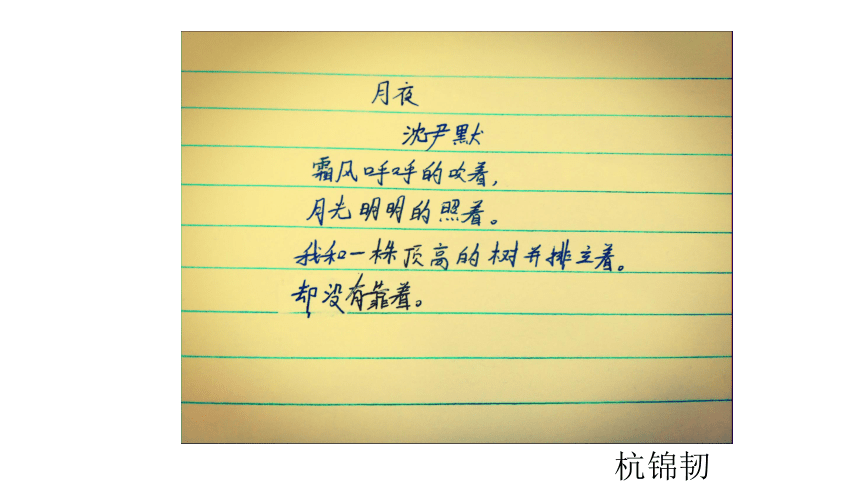 月夜
沈尹默
霜风呼呼的吹着,
月光明明的照着。
我和一株顶高的树并排立着。
却没有靠着。
杭锦韧